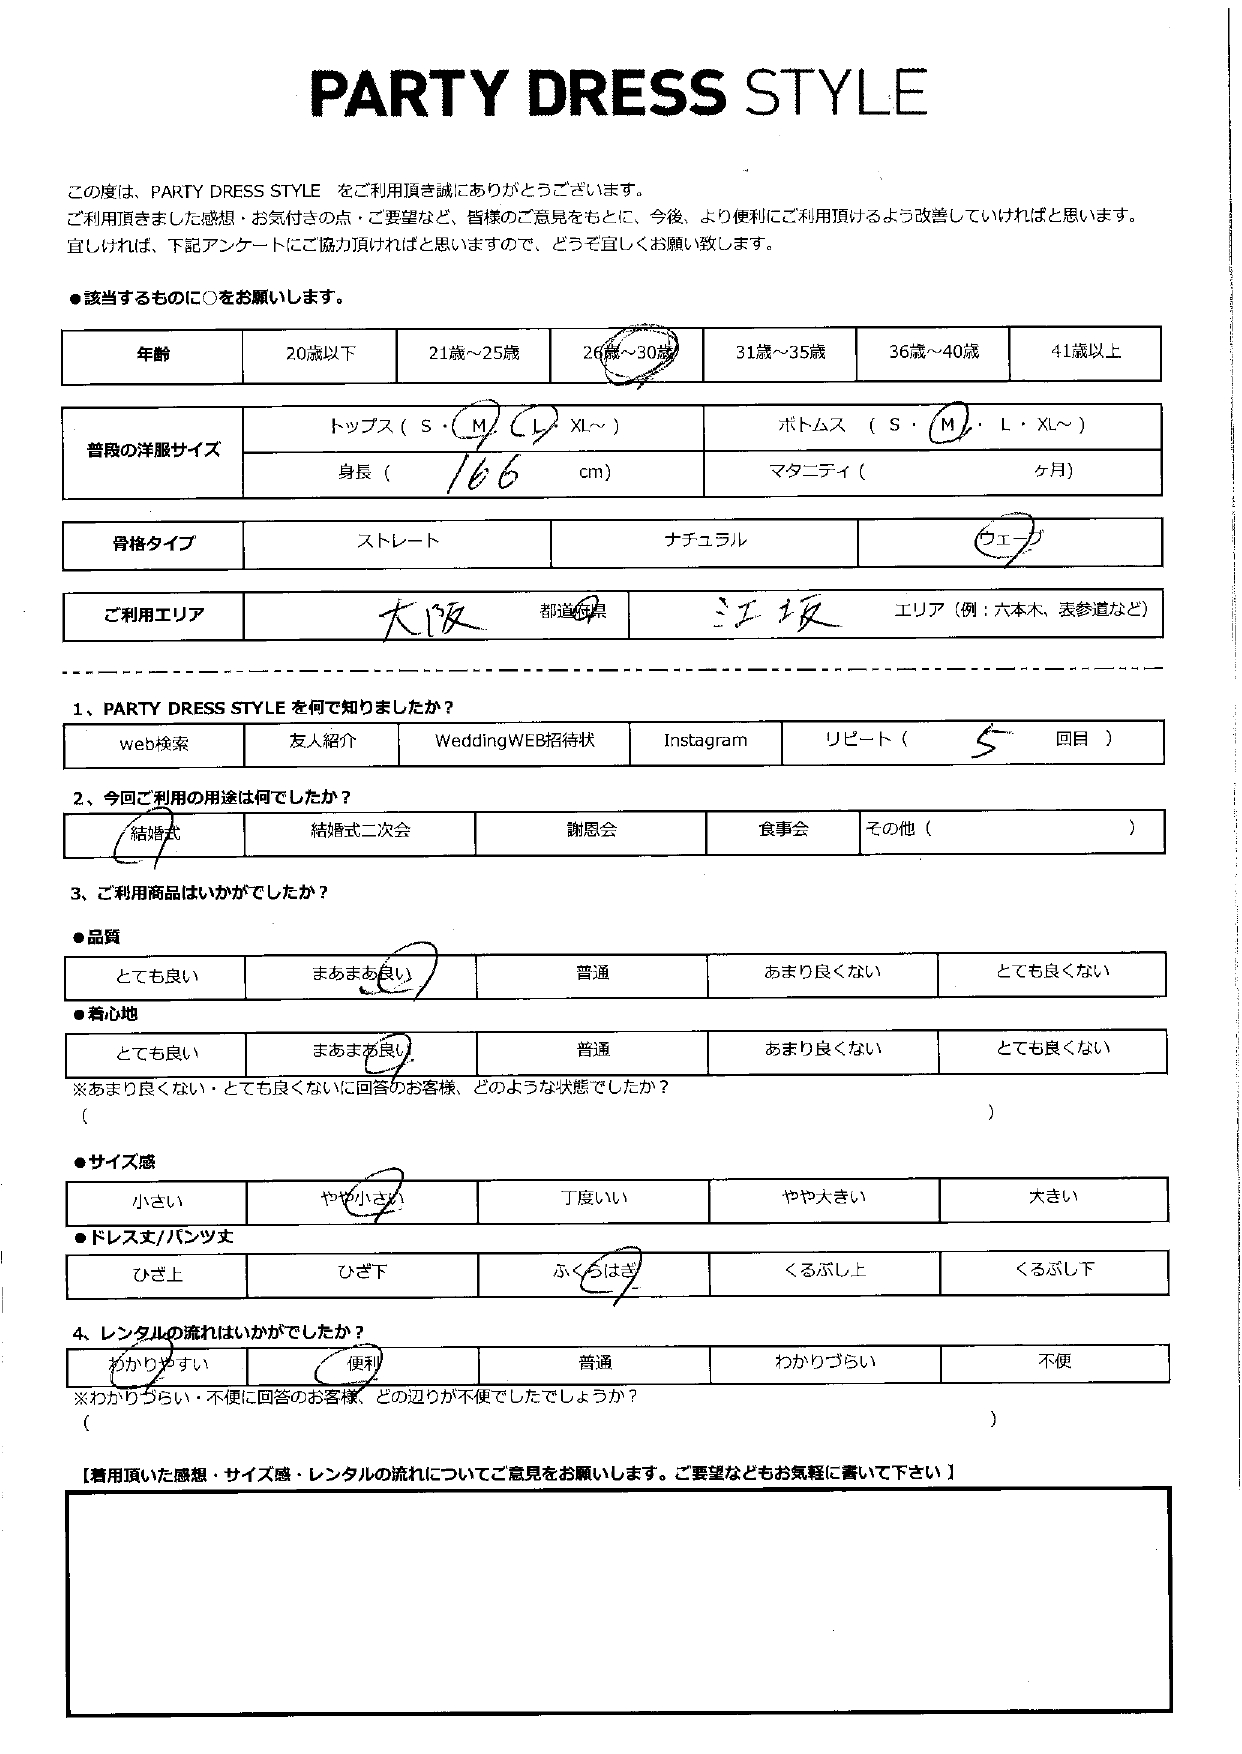 PARTY DRESS STYLE
この度は、PARTY DRESS STYLE をご利用頂き誠にありがとうございます。
ご利用頂きました感想・お気付きの点・ご要望など、皆様のご意見をもとに、今後、より便利にご利用頂けるよう改善していければと思います。
宜しければ、下記アンケートにご協力頂ければと思いますので、どうぞ宜しくお願い致します。
●該当するものに○をお願いします。
年齢 20歳以下 21歳～25歳 26歳～30歳 31歳～35歳 36歳～40歳 41歳以上
普段の洋服サイズ トップス ( S ・ M ・ L ・ XL～ ) ボトムス ( S ・ M ・ L ・ XL～ )
身長 ( 166 cm) マタニティ ( ヶ月)
骨格タイプ ストレート ナチュラル ウェーブ
ご利用エリア 大阪 都道府県 江坂 エリア（例：六本木、表参道など）
1、PARTY DRESS STYLE を何で知りましたか？
web検索 友人紹介 WeddingWEB招待状 Instagram リピート ( 5 回目 )
2、今回ご利用の用途は何でしたか？
結婚式 結婚式二次会 謝恩会 食事会 その他 ( )
3、ご利用商品はいかがでしたか？
●品質
とても良い まあまあ良い 普通 あまり良くない とても良くない
●着心地
とても良い まあまあ良い 普通 あまり良くない とても良くない
※あまり良くない・とても良くないに回答のお客様、どのような状態でしたか？
( )
●サイズ感
小さい やや小さい 丁度いい やや大きい 大きい
●ドレス丈/パンツ丈
ひざ上 ひざ下 ふくらはぎ くるぶし上 くるぶし下
4、レンタルの流れはいかがでしたか？
わかりやすい 便利 普通 わかりづらい 不便
※わかりづらい・不便に回答のお客様、どの辺りが不便でしたでしょうか？
( )
【着用頂いた感想・サイズ感・レンタルの流れについてご意見をお願いします。ご要望などもお気軽に書いて下さい 】